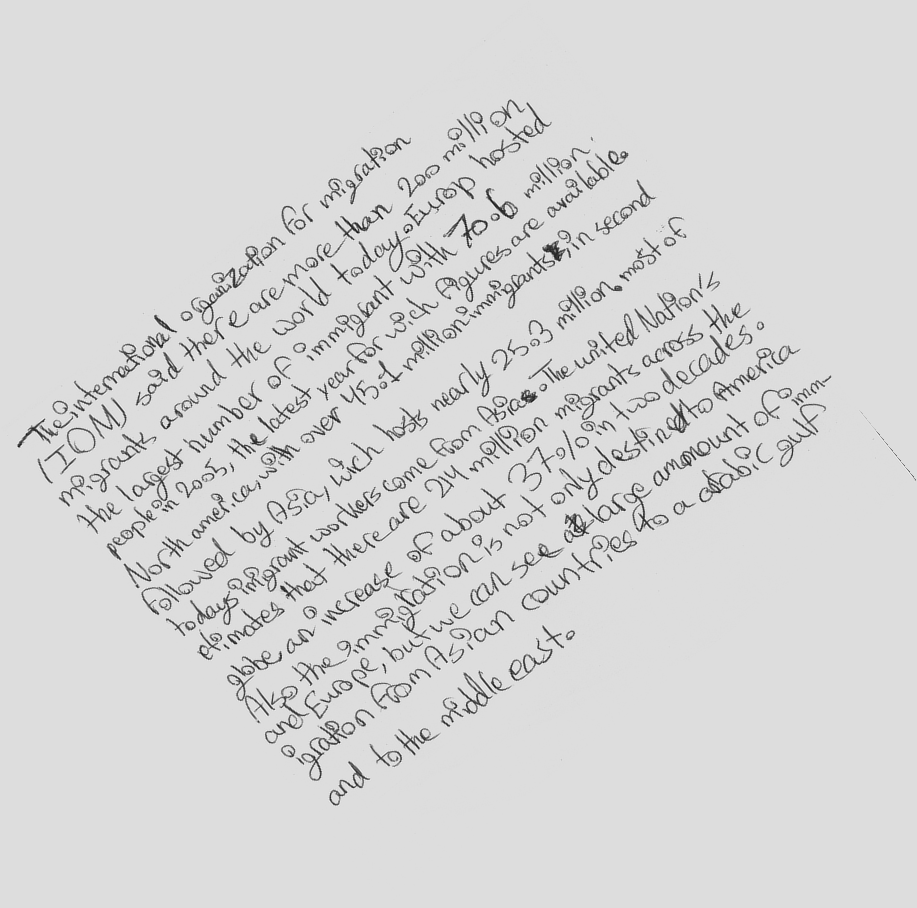 The international organization for migration
(IOM) said there are more than 200 million
migrants around the world today. Europ hosted
the largest number of immigrant with 70.6 million.
people in 2005, the latest year for wich figures are available.
North america, with over 45.1 million immigrants, is in second
followed by Asia, wich hosts nearly 25.3 million. most of
todays imigrant workers come from Asia. The united Nation's
etimates that there are 214 million migrants across the
globe, an increase of about 37% in two decades.
Also the immigration is not only destined to America
and Europe, but we can see a large ammount of imm-
igration from Asian countries to a arabic gulf
and to the middle east.